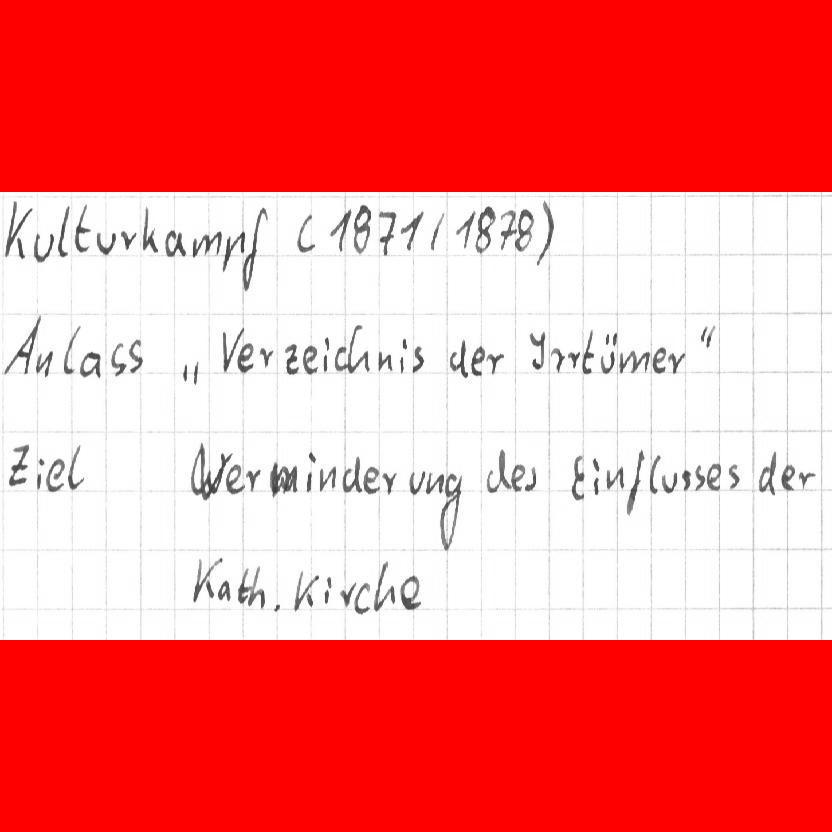 Kulturkampf (1871/1878)
Anlass „Verzeichnis der Irrtümer“
Ziel Verminderung des Einflusses der
Kath. Kirche